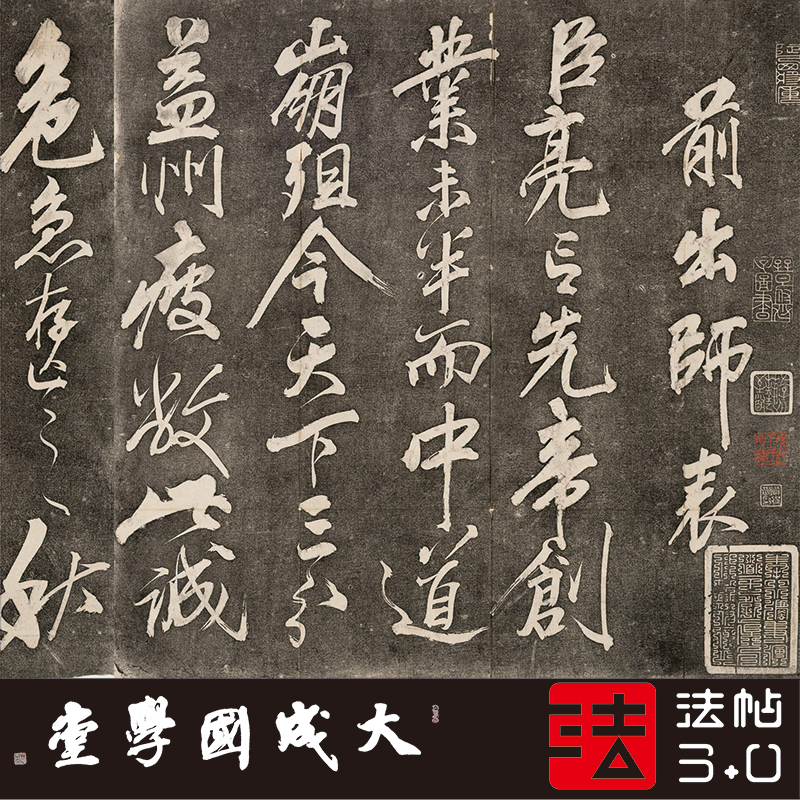 前出師表
臣亮言先帝創
業未半而中道
崩殂今天下三分
益州疲敝此誠
危急存亡之秋
大成國學堂
法
法帖
3.0